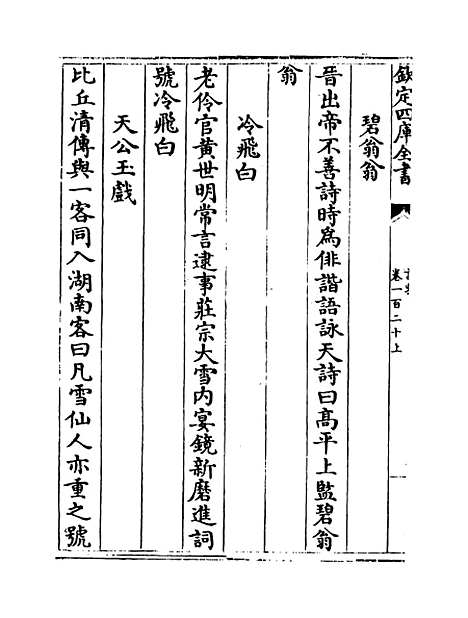 欽定四庫全書
卷一百二十上
碧翁翁
晉出帝不善詩時為俳諧語詠天詩曰高平上監碧翁
翁
冷飛白
老伶官黃世明常言逮事莊宗大雪内宴鏡新磨進詞
號冷飛白
天公玉戲
比丘清傳與一客同入湖南客曰凡雪仙人亦重之號